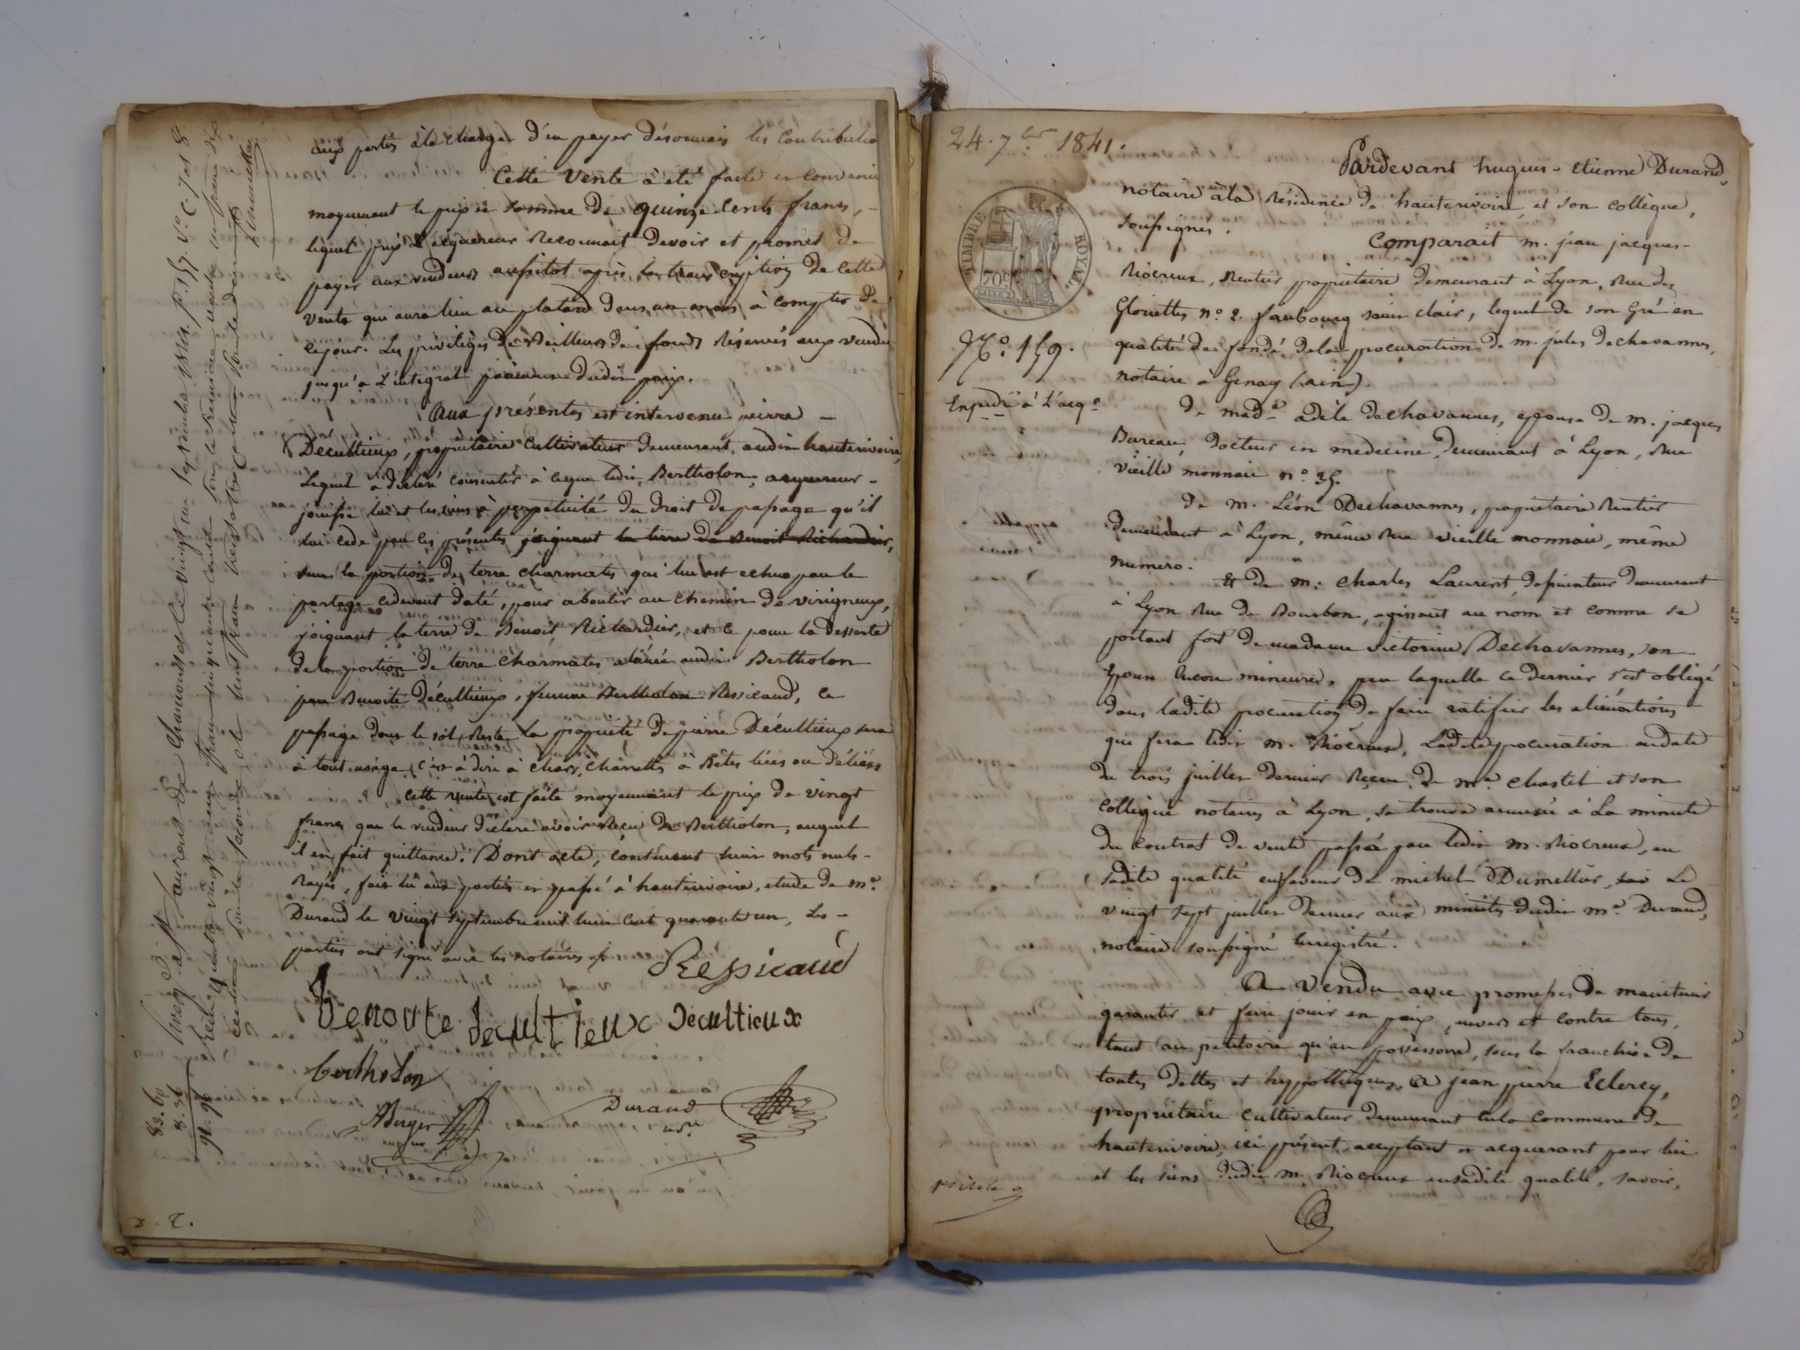 aux parties à la charge d'en payer désormais les Contributio
Cette Vente à eté faite et Convenue
moyennant le prix et somme de quinze Cents francs,
lequel prix l'acquereur Reconnait devoir et promet de
payer aux vendeurs aussitot après la transcription de Cette
Vente qui aura lieu au plutard dans un mois à compter de
cejour. Les privilèges de Bailleurs de fonds Réservés aux vende
jusqu'a L'intégral paiement dudit prix.
Aux présentes est intervenu pierre
Décultieux, propriétaire Cultivateur demeurant, audit hauterivoire,
Lequel à déclaré consentir à ceque ledit Bertholon, acquereur
jouisse lui et les siens à perpétuité du droit de passage qu'il
lui cede par les présentes joignant la terre de Benoit Richardier,
sur la portion de terre charmates qui lui est echue par le
partage cidevant daté, pour aboutir au chemin de virigneux,
joignant la terre de Benoit Richardier, et ce pour la desserte
de la portion de terre Charmates aliénée audit Bertholon
par Benoite Décultieux, femme Bertholon Ressicaud, ce
passage dont le sol Reste la propriété de pierre Décultieux sera
à tout usage, c'est à dire à chars, charrettes à Bêtes liées ou déliées
Cette vente est faite moyennant le prix de vingt
francs que le vendeur déclare avoir Reçu de Bertholon, auquel
il en fait quittance. Dont acte, contenant huit mots nuls
Rayés, fait lu aux parties et passé à hauterivoire, etude de me.
Durand le vingt septembre mil huit cent quarante un, Les
parties ont signé avec les notaires
Réssicaud
Benoite Decultieux Décultieux
bertholon
ABerger
Durand
nre
83. 60
8. 36
91. 96
24. 7bre 1841.
Pardevant hugues-etienne Durand,
notaire à la Résidence de hauterivoire, et son collègue,
soussignés.
TIMBRE ROYAL
70c
Comparait m. jean jacques
Riocreux, Rentier propriétaire demeurant à Lyon, Rue des
Gloriettes no. 2. faubourg saint clair, lequel de son Gré en
qualité de fondé de la procuration de m. jules dechavannes,
No. 159.
notaire à Genay (ain).
Expédié à L'acqr.
De made. adèle dechavannes, epouse de m. jacques
Bureau, docteur en medecine, demeurant à Lyon, Rue
vieille monnaie no. 35.
de m. Léon Dechavannes, propriétaire Rentier
demeurant à Lyon, même Rue vieille monnaie, même
numéro.
Et de m. charles Laurent, demeurant
à Lyon Rue de Bourbon, agissant au nom et comme se
portant fort de madame victorine Dechavannes, son
Epouse Encore mineure, par laquelle ce dernier s'est obligé
dans ladite procuration de faire ratifier les aliénations
que fera ledit m. Riocreux, Ladite procuration en date
du trois juillet dernier Reçue de me. chastel et son
collègue notaires à Lyon, se trouve annexée à La minute
du contrat de vente passé par ledit m. Riocreux, en
sadite qualité en faveur de michel Dumellier, Le
vingt sept juillet dernier aux minutes dudit me. Durand,
notaire soussigné Enregistré.
A vendu avec promesses de maintenir
garantir et faire jouir en paix, envers et contre tous,
tant au petitoire qu'au possessoire, sous la franchise de
toutes dettes et hypothèques, à jean pierre Eclercy,
propriétaire cultivateur demeurant en la commune de
hauterivoire, ici présent, acceptant et acquerant pour lui
et les siens dudit m. Riocreux en sadite qualité, savoir,